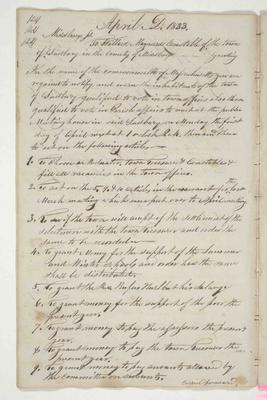 April 1, 1833.
Middlesex ss.
To Maynard Constable of the town
of Sudbury in the county of Middlesex Greeting
In the name of the commonwealth of Massachusetts you are
required to notify and warn the inhabitants of the town
of Sudbury qualified to vote in town affairs also those
qualified to vote in Parish affairs to meet at the public
Meeting house in said Sudbury on Monday the first
day of April next at 1 o clock P.M. then and there
to act on the following articles
1. To choose a Moderator, town Treasurer & Constables &
fill all vacancies in the town offices.
2. To act on the articles in the warrant for the last
March meeting which were put over to April meeting
3. To see if the town will accept of the settlement of the
selectmen with the town Treasurer and order the
same to be recorded
4. To grant Money for the support of the Summer
and Winter Schools and order how the same
shall be distributed.
5. To grant the Rev. Rufus Hurlbut his salary
6. To grant money for the support of the poor the
present year.
7. To grant money to pay the assessors the present
year.
8. To grant money to pay the town Treasurer the
present year.
9. To grant money to pay amounts allowed by
the committee on accounts.
Carried forward